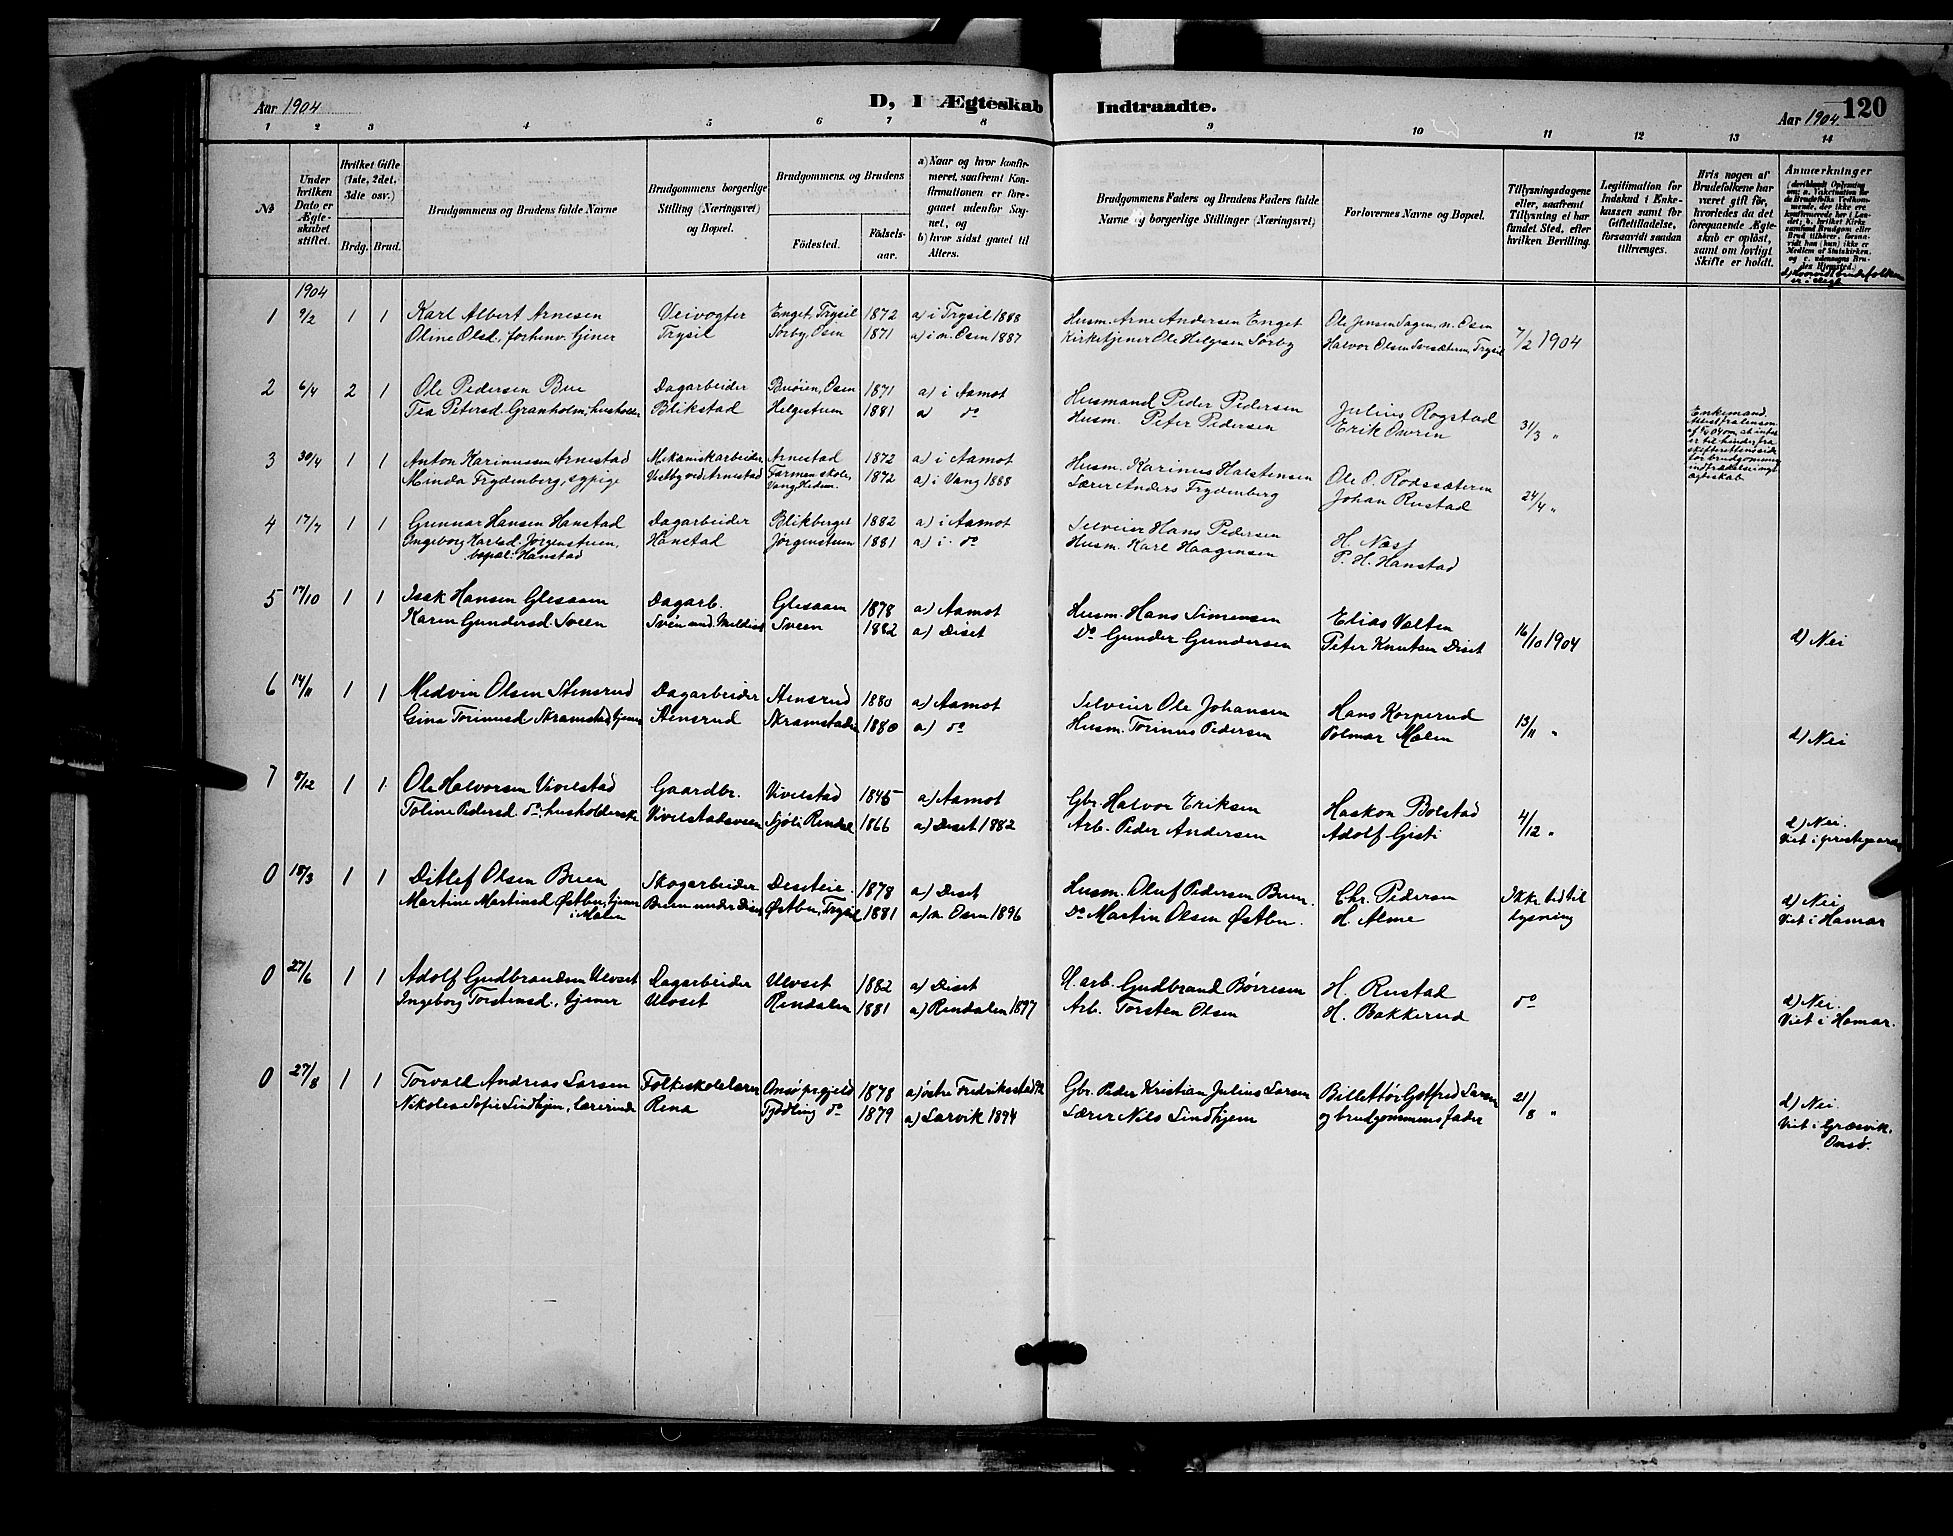 Aar 1904
D, I Ægteskab Indtraadte.
Aar 1904
120
1 2 3 4 5 6 7 8 9 10 11 12 13 14
№
Under hvilken Dato er Ægteskabet stiftet.
Hvilket Gifte (1ste, 2det, 3die osv.)
Brdg. Brud.
Brudgommens og Brudens fulde Navne
Brudgommens borgerlige Stilling (Næringsvei) og Bopæl.
Brudgommens og Brudens
Födested. Födselsaar.
a) Naar og hvor konfirmeret, saafremt Konfirmationen er foregaaet udenfor Sognet, og
b) hvor sidst gaaet til Alters.
Brudgommens Faders og Brudens Faders fulde Navne og borgerlige Stillinger (Næringsvei)
Forlovernes Navne og Bopæl.
Tillysningsdagene eller, saafremt Tillysning ei har fundet Sted, efter hvilken Bevilling.
Legitimation for Indskud i Enkekassen samt for Giftetilladelse, forsaavidt saadan tiltrænges.
Hvis nogen af Brudefolkene har været gift för, hvorledes da det foregaaende Ægteskab er oplöst, samt om lovligt Skifte er holdt.
Anmærkninger
1904
1 9/2 1 1 Karl Albert Arnesen Veivogter Enget, Trysil 1872 a) i Trysil 1888 Husm. Arne Andersen Enget Ole Jensen Sagen, n. Osen 7/2 1904
Oline Olsd., forhenv. tjener Trysil Sørby, Osen 1871 a) i n. Osen 1887 Kirketjener Ole Helgesen Sørby Halvor Olsen Trysil
2 6/4 2 1 Ole Pedersen Bue Dagarbeider Osen 1871 a) i Aamot Husmand Peder Pedersen Julius Rogstad 31/3 "
Tea Petersd. Granholm, Blikstad Helgestuen 1881 a) do Husm. Peter Pedersen Erik
Enkemand.
3 30/4 1 1 Anton Karinussen Arnestad Mekaniskarbeider Arnestad 1872 a) i Aamot Husm. Karinus Halstensen Ole O. Rødssæteren 24/4 "
Minda Frydenberg, sypige Vestby ved Arnestad Farmen skole, Vang, Hedem. 1872 a) i Vang 1888 Lærer Anders Frydenberg Johan Rustad
4 17/7 1 1 Gunnar Hansen Hanstad Dagarbeider Blikberget 1882 a) i Aamot Selveier Hans Pedersen H. Næss
Ingeborg Karlsd. Jørgenstuen, Hanstad Jørgenstuen 1881 a) i do Husm. Karl Haagensen P. H. Hanstad
bopæl: Hanstad
5 17/10 1 1 Isak Hansen Glesaaen Dagarb. Glesaaen 1878 a) Aamot Husm. Hans Simensen Elias Valten 16/10 1904
Karen Gundersd. Sveen Sveen und. Sveen 1882 a) Diset Do Gunder Gundersen Peter Knutsen Diset d) Nei
6 14/11 1 1 Medvin Olsen Stensrud Dagarbeider Stensrud 1880 a) Aamot Selveier Ole Johansen Hans Korperud 13/11 "
Gina Torinusd. Skramstad, tjener Stensrud 1880 a) do Husm. Torinus Pedersen Polmar Mælen d) Nei
7 8/12 1 1 Ole Halvorsen Vivelstad Gaardbr. Vivelstad 1845 a) Aamot Gbr. Halvor Eriksen Haakon Bolstad 4/12 "
Toline Pedersd. do, husholderske Vivelstadsveen Sjøli, Rendal 1866 a) Diset 1882 Arb. Peder Andersen Adolf Gisti d) Nei.
0 18/3 1 1 Ditlef Olsen Buen Skogarbeider Diseteie. 1878 a) Diset Husm. Oluf Pedersen Buen. Chr. Pedersen Ikke tid til lysning d) Nei
Martine Martinsd. Østbu, tjener Buen under Diset Østbu, Trysil 1881 a) n. Osen 1896 Do Martin Olsen Østbu. H. Alme Viet i Hamar
0 27/6 1 1 Adolf Gudbrandsen Ulvset Dagarbeider Ulvset 1882 a) Diset Gudbrand Børresen H. Rustad do d) Nei.
Ingeborg Torstensd., tjener Ulvset Rendalen 1881 a) Rendalen 1897 Arb. Torsten Olsen H. Bakkerud Viet i Hamar.
0 27/8 1 1 Torvald Andreas Larsen Folkeskolelærer Onsø prgjeld 1878 a) østre Fredriksstad Gbr. Peder Kristian Julius Larsen Gotfred Larsen 21/8 " d) Nei.
Nikolea Sofie Lindhjem, lærerinde Rena Tjødling do 1879 a) Larvik 1894 Lærer Nils Lindhjem og brudgommens fader Viet i Græsvik, Onsø.